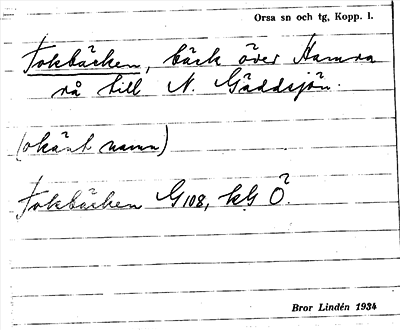 Orsa sn och tg, Kopp. l.
Tokbäcken, bäck över Hamra
rå till N. Gäddsjön.
(okänt namn)
Tokbäcken G108, kbl Ö.
Bror Lindén 1934